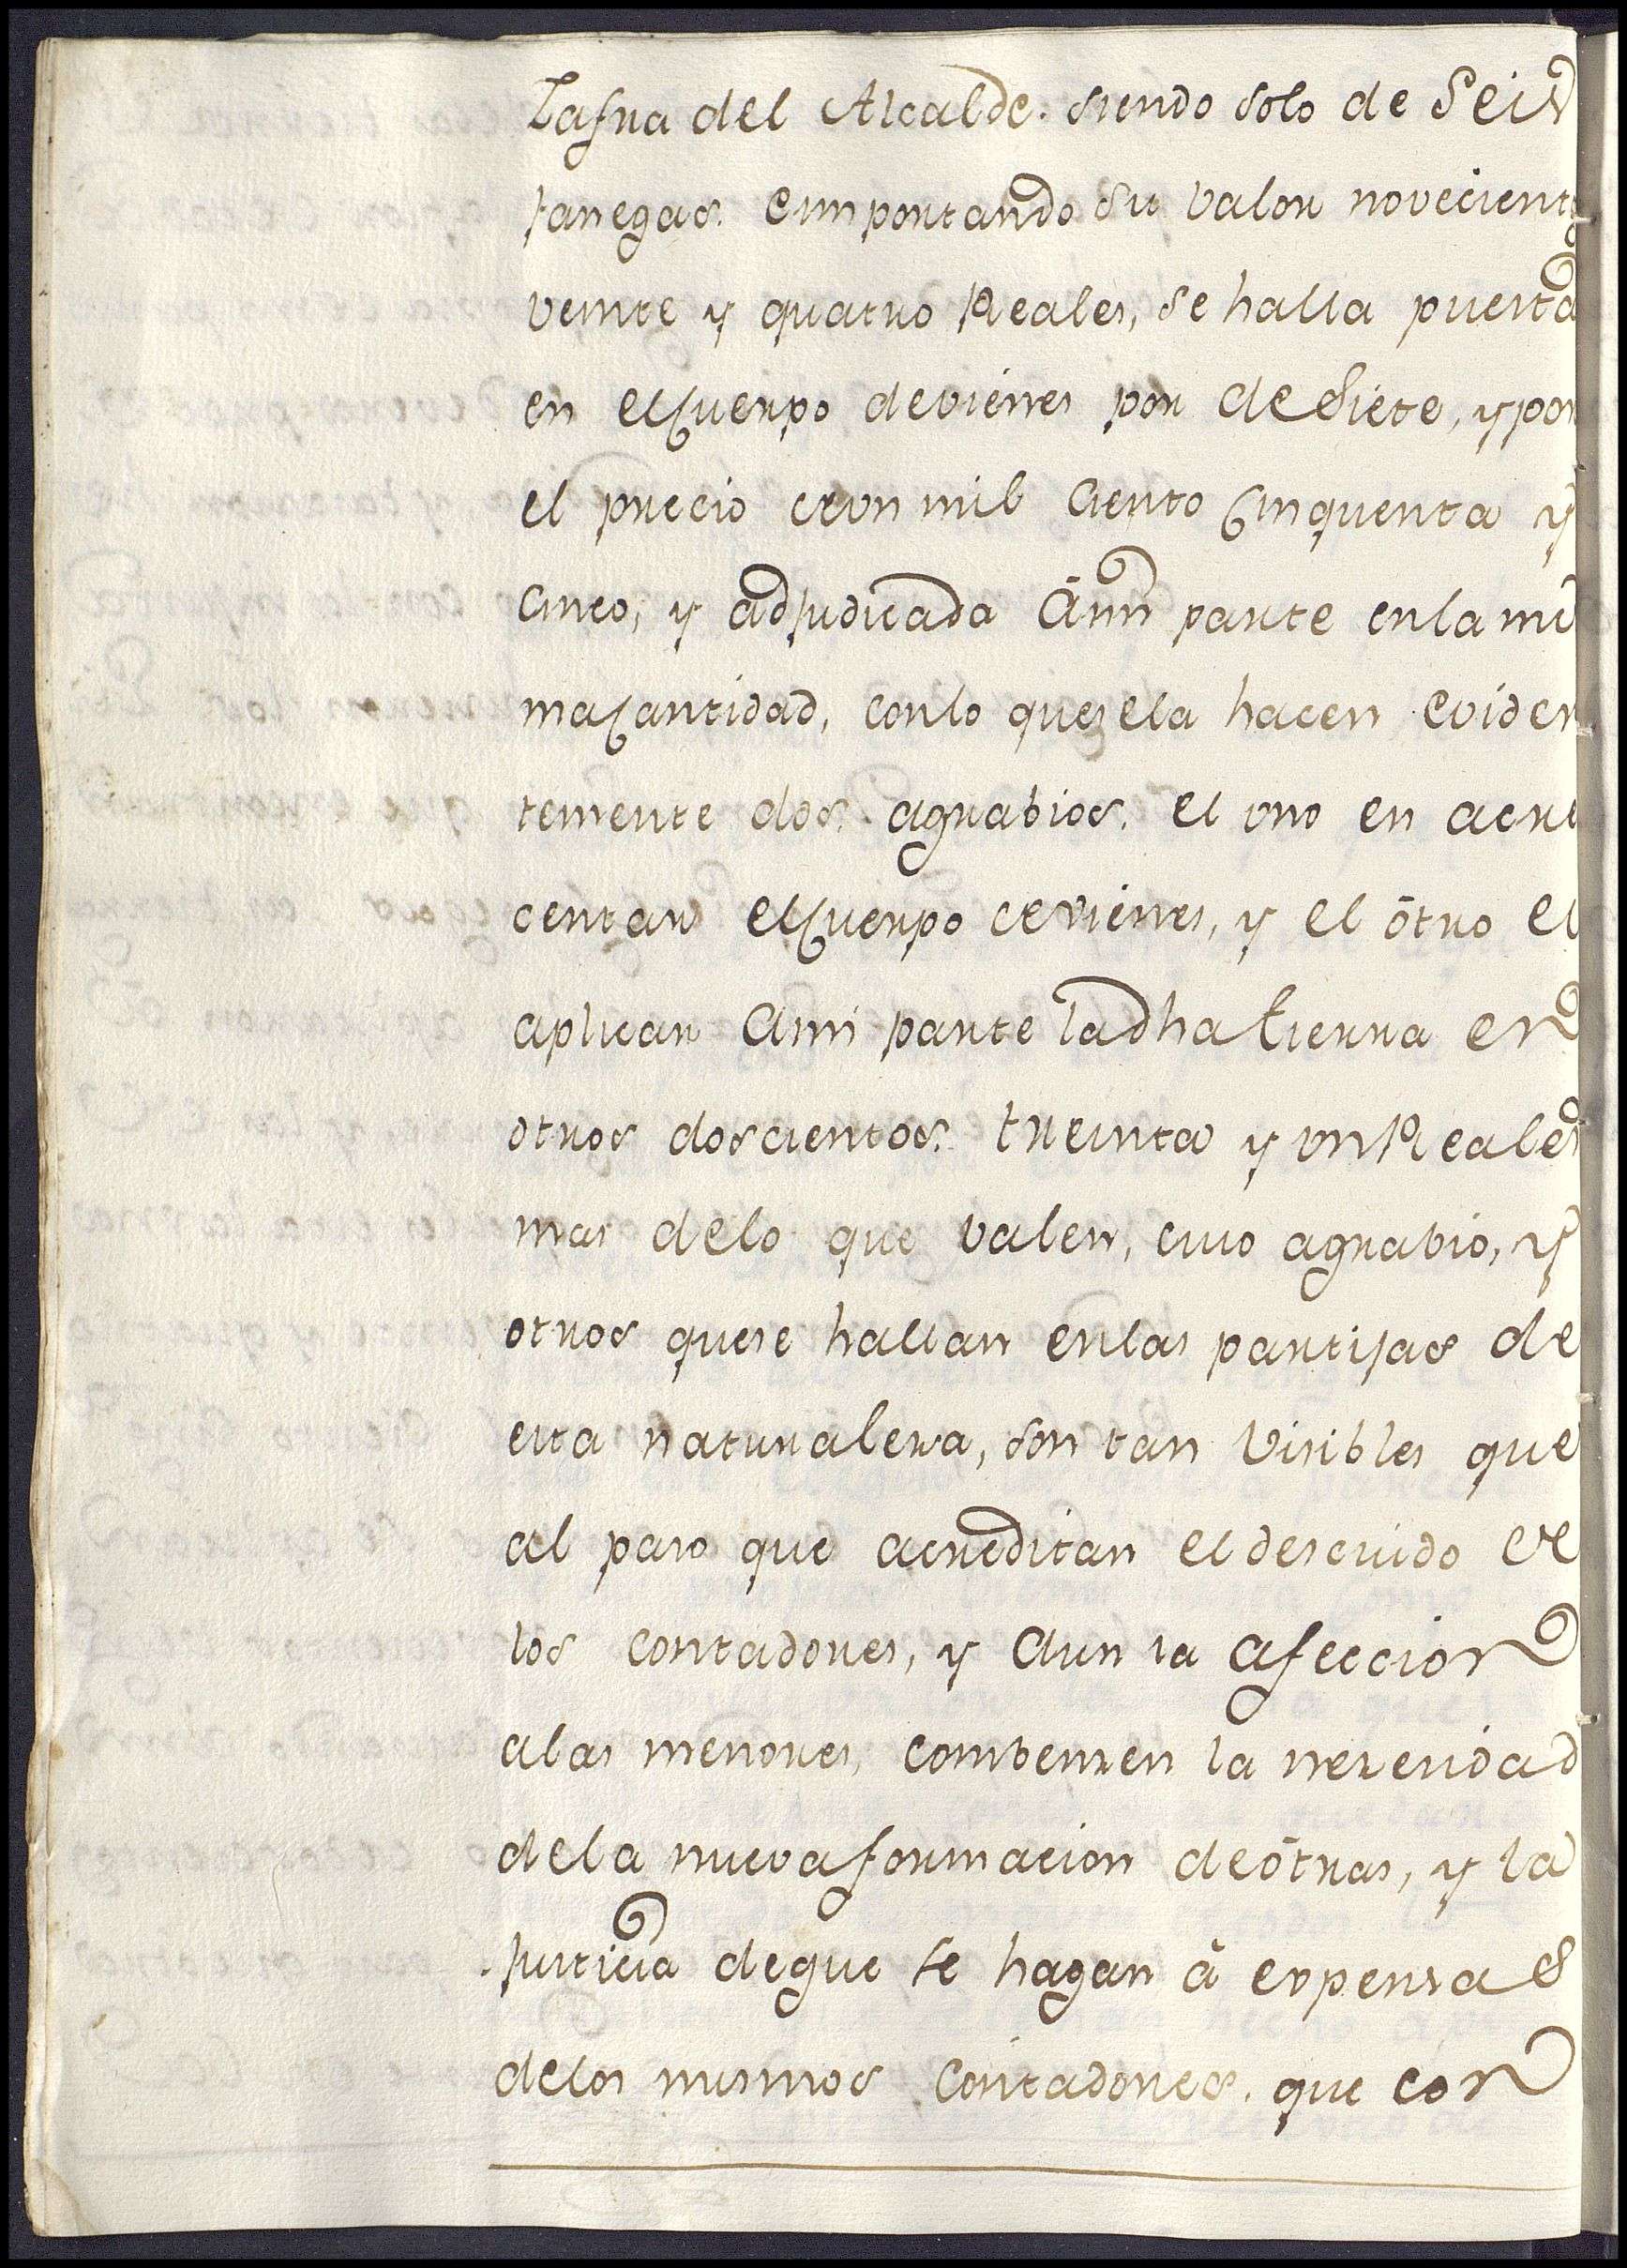 Zafra del Alcalde. siendo solo de Seis
fanegas. e importando su valor novecientos
veinte y quatro Reales, se halla puesta
en el Cuerpo de vienes por de Siete, y por
el precio de vn mil ciento Cinquenta y
cinco, y adjudicada â mi parte en la mis
ma Cantidad, con lo que se la hacen eviden
temente dos agrabios. el vno en acre
centar el Cuerpo de vienes, y el ôtro el
aplicar a mi parte la dha tierra en
otros doscientos treinta y vn Reales
mas de lo que valen, cuio agrabio, y
otros que se hallan en las partijas de
esta naturaleza, son tan visibles que
al paso que acreditan el descuido de
los contadores, y aun la afeccion
a las menores, combenzen la nezesidad
de la nueva formacion de ôtras, y la
justicia de que se hagan â expensas
de los mismos Contadores. que con